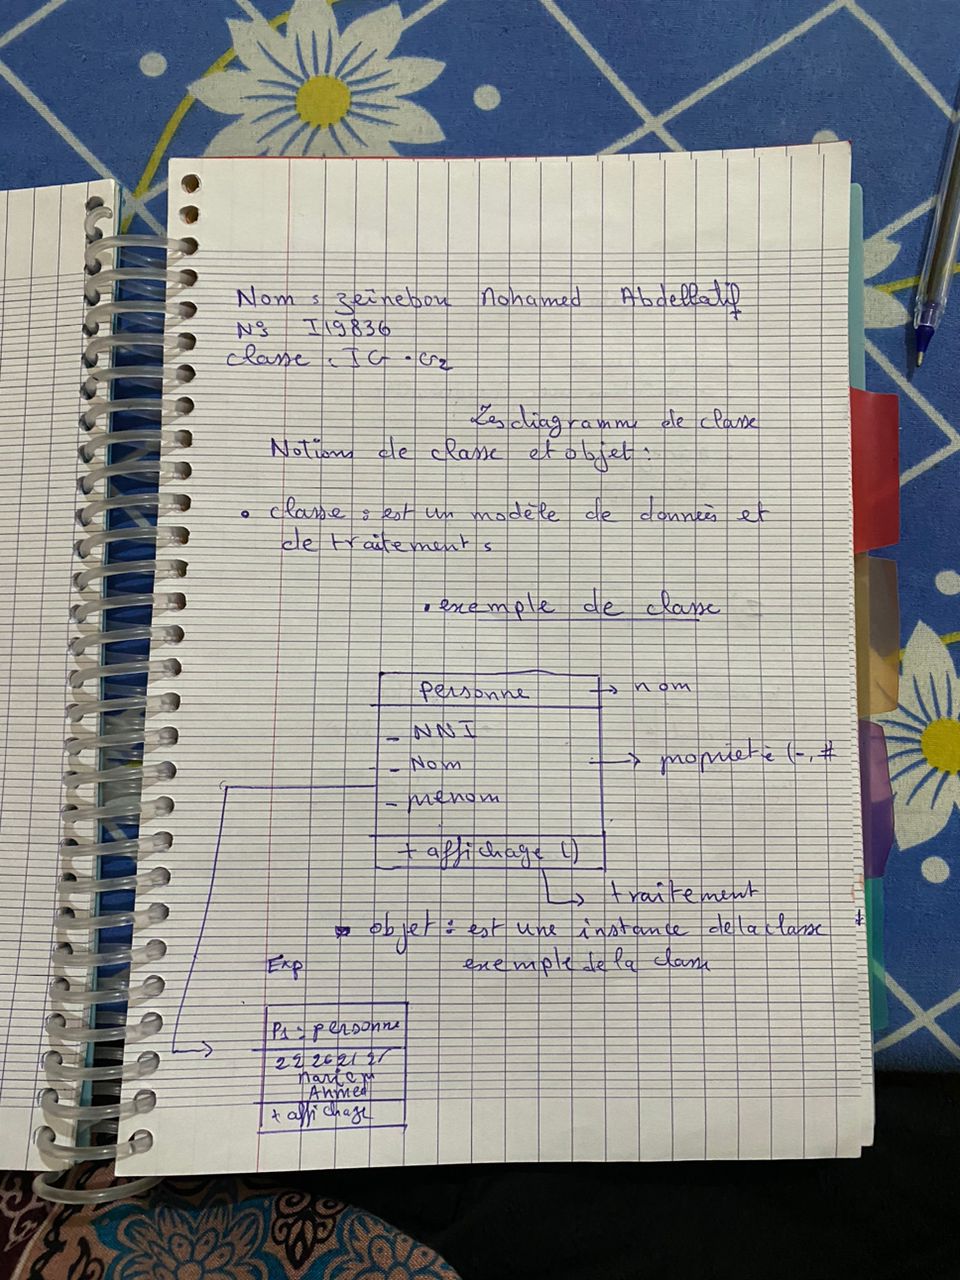 Nom : zeinebou Mohamed Abdellatif
N° I19836
classe : IG . G2
Les diagramme de classe
Notions de classe et objet :
• classe : est un modèle de données et
de traitements
• exemple de classe
personne → nom
- NNI
- Nom → proprietè (-, #
- prénom
+ affichage ()
→ traitement
objet : est une instance de la classe
Exp exemple de la classe
P1 : personne
Mariem
Ahmed
+ affichage